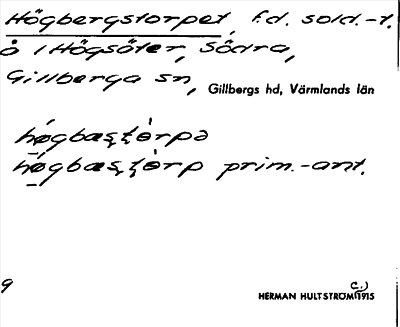 Högbergstorpet, f.d. sold.-t.
å 1 Högsäter, Södra,
Gillberga sn, Gillbergs hd, Värmlands län
høgbæʂʈòrpə
høgbæʂʈòrp prim.-ant.
9
C.)
HERMAN HULTSTRÖM 1915